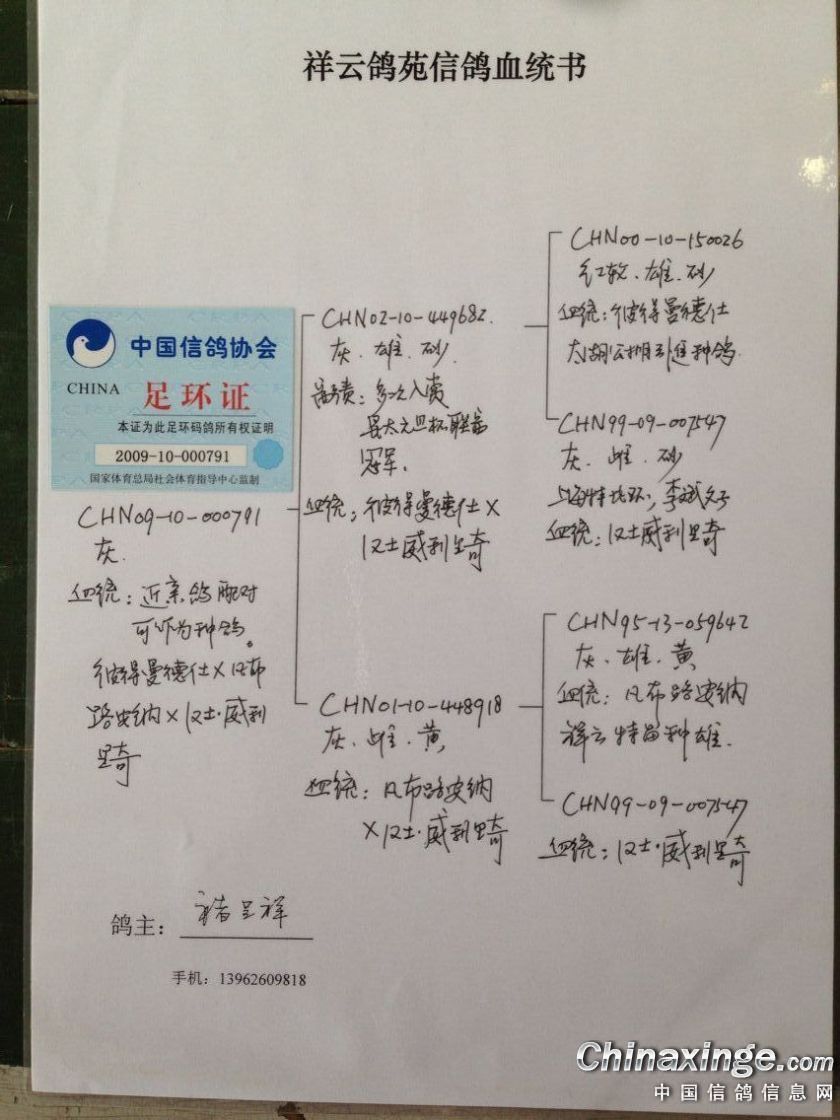 祥云鸽苑信鸽血统书
中国信鸽协会
CHINA 足环证
本证为此足环码鸽所有权证明
2009-10-000791
国家体育总局社会体育指导中心监制
CHN09-10-000791
灰.
血统：近亲鸽配对
可作为种鸽。
彼得曼德仕×凡布
路安纳×汉士·威利
里奇
CHN02-10-449682.
灰.雄.砂.
多次入赏
元旦杯联翁
冠军.
血统：彼得曼德仕×
汉士威利里奇
CHN01-10-448918
灰.雌.黄.
血统：凡布路安纳
×汉士·威利里奇
CHN00-10-150026
红轮.雄.砂
血统：彼得曼德仕
太湖公棚引进种鸽.
CHN99-09-007547
灰.雌.砂
上海特比环,李斌父子
血统：汉士威利里奇
CHN95-13-059642
灰.雄.黄
血统：凡布路安纳
祥云特留种雄.
CHN99-09-007547
血统：汉士·威利里奇
鸽主：褚呈祥
手机：13962609818
Chinaxinge.com
中国信鸽信息网